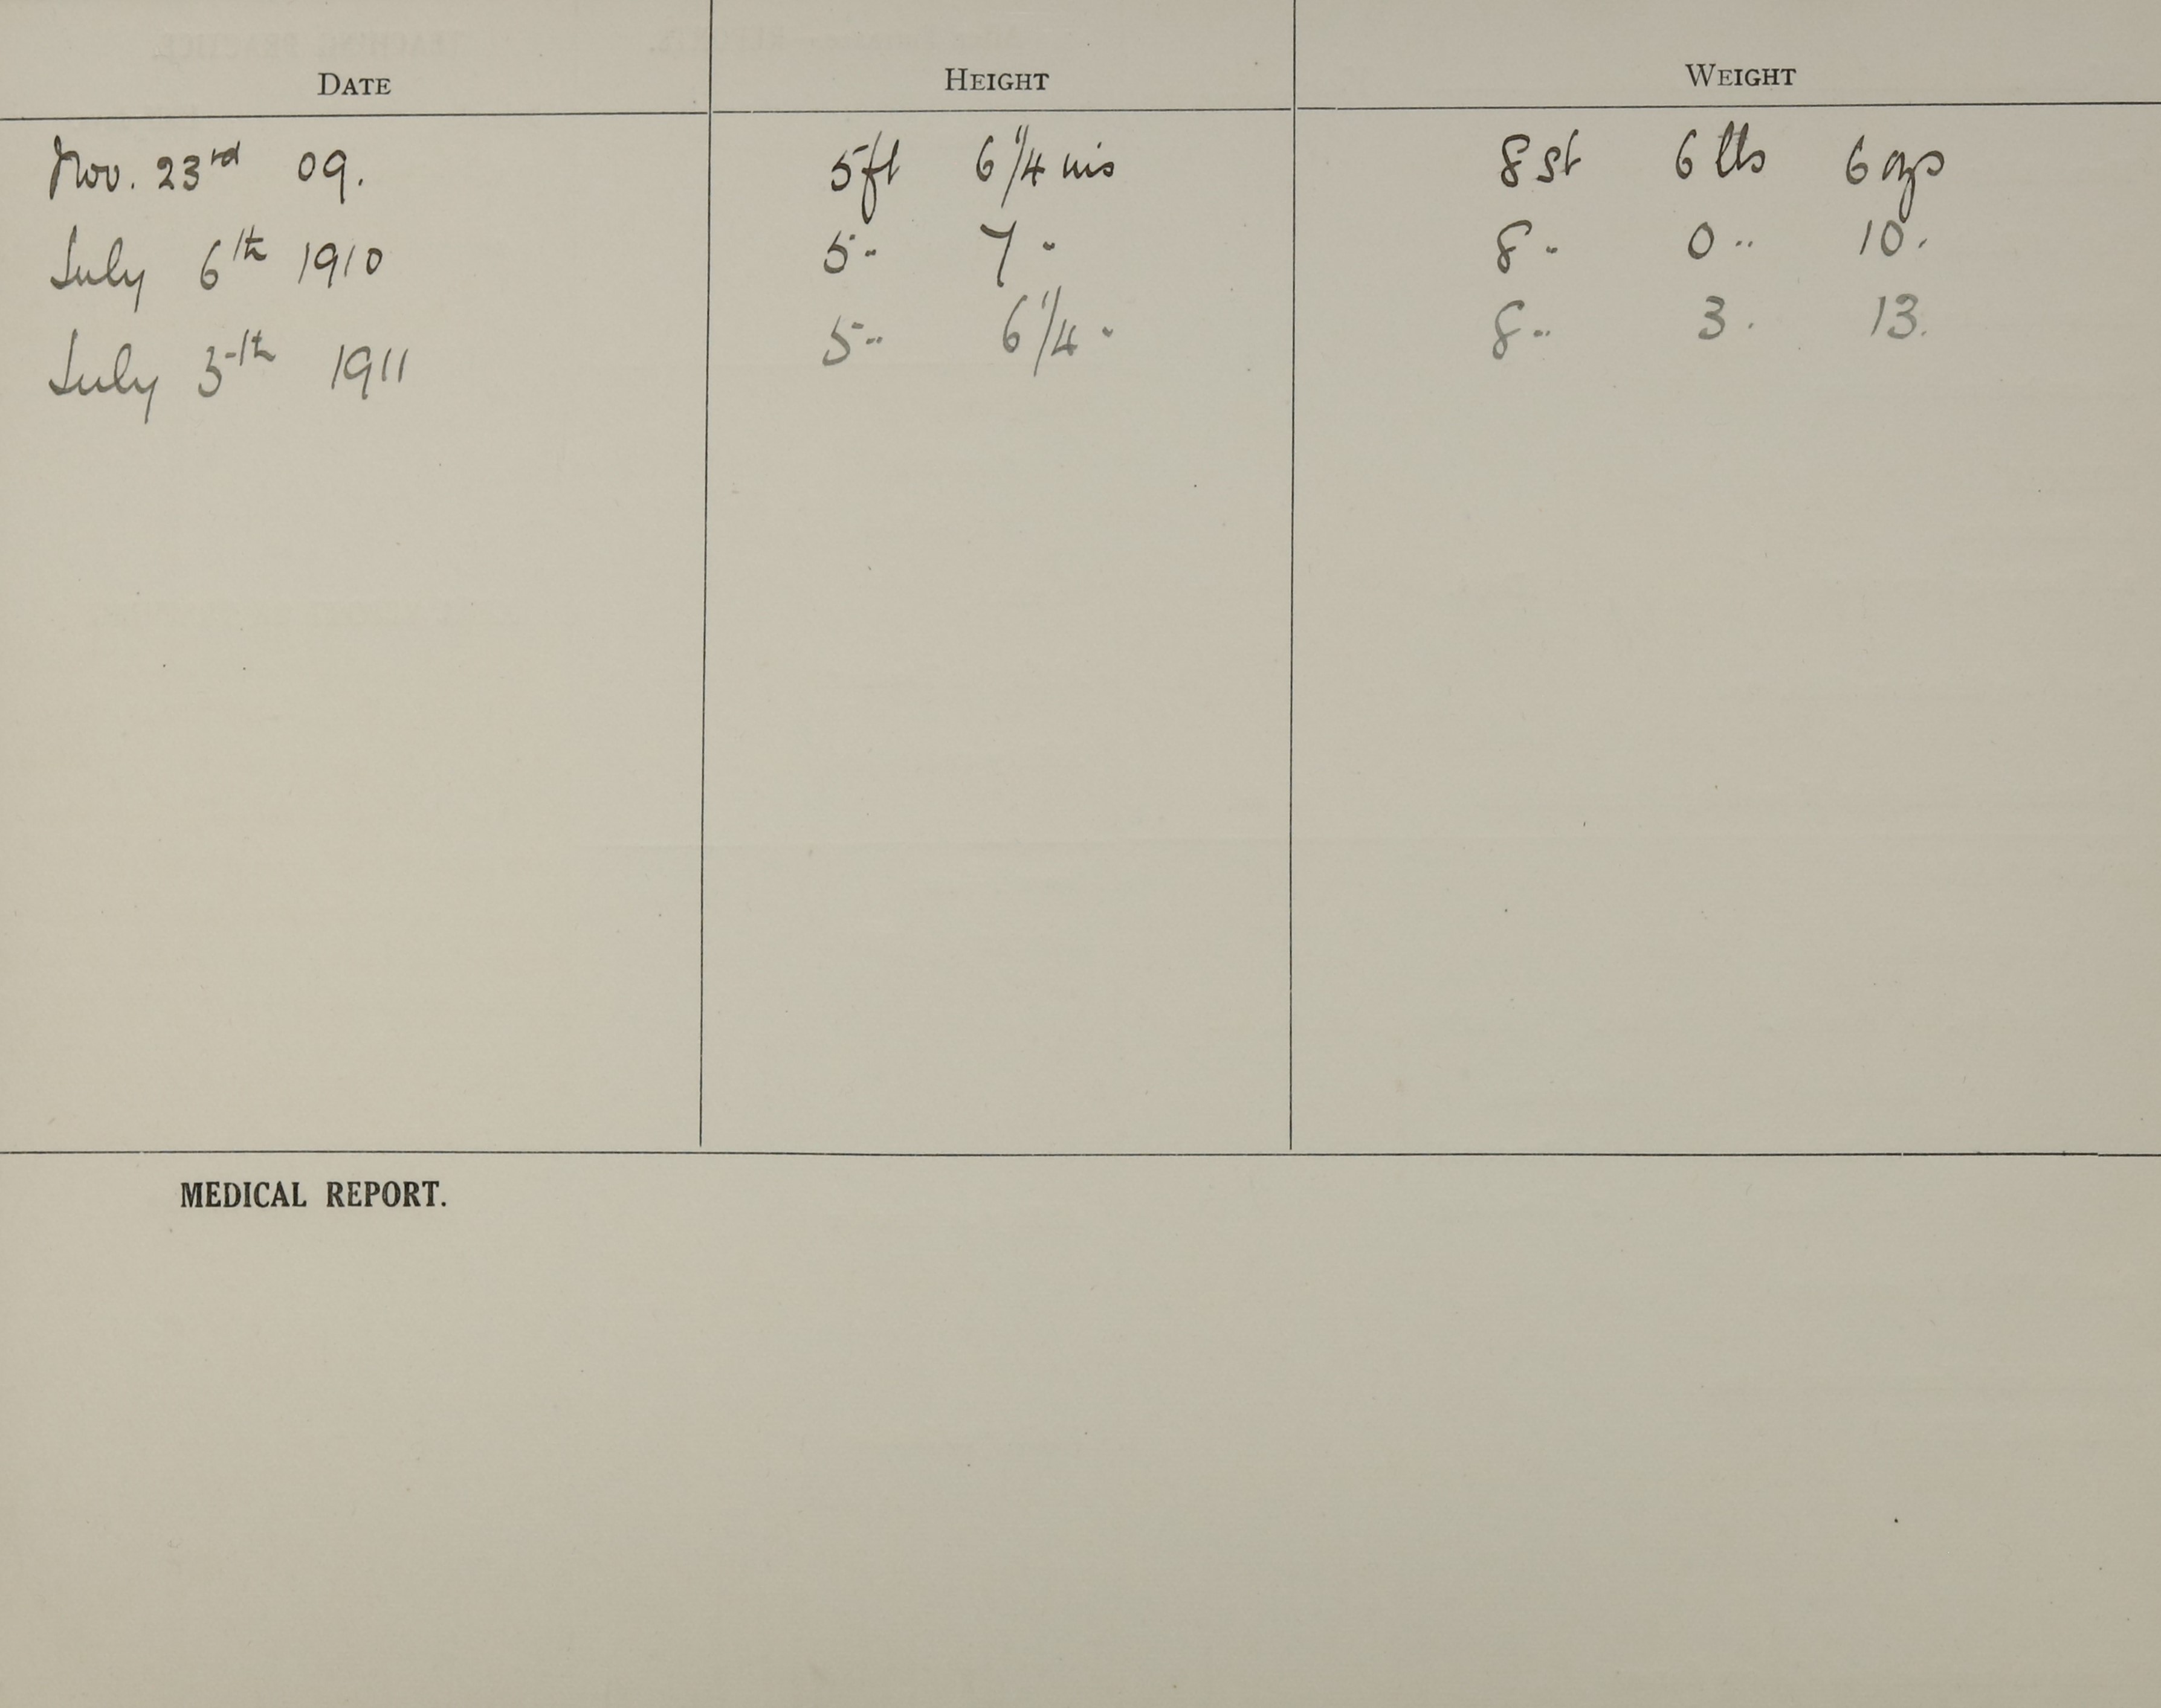 DATE HEIGHT WEIGHT
Nov. 23rd 09. 5ft 6 1/4 ins 8 st 6 lbs 6 ozs
July 6th 1910 5 " 7 " 8 " 0 " 10 "
July 5th 1911 5 " 6 1/4 " 8 " 3 " 13.
MEDICAL REPORT.